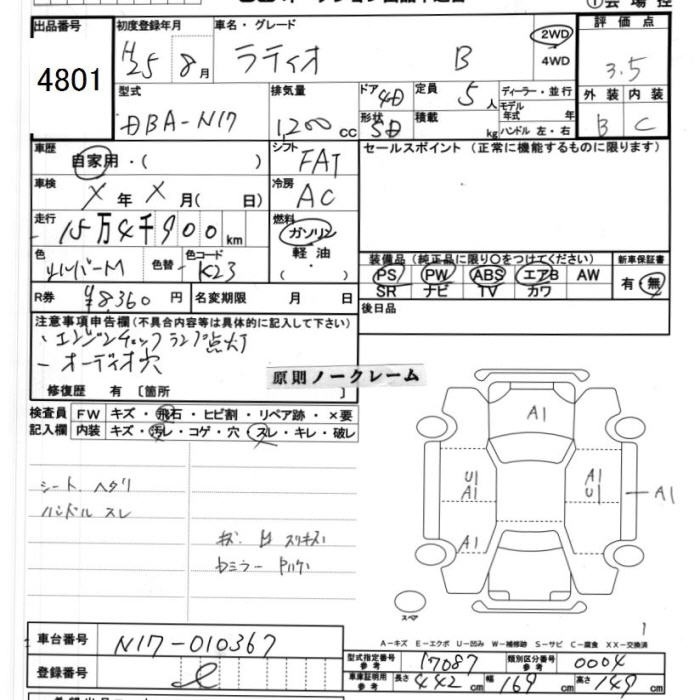 出品番号 4801
初度登録年月 H25 8月
車名・グレード ラティオ B
2WD
4WD
評価点 3.5
外装 B 内装 C
型式 DBA-N17
排気量 1,200 cc
ドア 4D
形状 SD
定員 5人
積載 kg
ディーラー・並行
モデル年式 年式
ハンドル 左・右
車歴 自家用・( )
シフト FAT
セールスポイント (正常に機能するものに限ります)
車検 X年 X月( 日)
冷房 AC
走行 15万4千900km
燃料 ガソリン
軽油
・( )
色 シルバーM 色替 - 色コード K23
装備品(純正品に限り○をつけてください)
PS PW ABS エアB AW
SR ナビ TV カワ
新車保証書
有・無
R券 ¥8360円 名変期限 月 日
後日品
注意事項申告欄(不具合内容等は具体的に記入して下さい)
・エンジンチェックランプ点灯
- オーディオ穴
原則ノークレーム
修復歴 有 〔箇所 〕
検査員記入欄 FW キズ・飛石・ヒビ割・リペア跡・×要
内装 キズ・汚レ・コゲ・穴・スレ・キレ・破レ
シート ヘタリ
ハンドル スレ
A1
U1
A1
A1
U1
A1
A1
スペア
1
A-キズ E-エクボ U-凹み W-補修跡 S-サビ C-腐食 XX-交換済
車台番号 N17-010367
登録番号
型式指定番号 参考 17087 類別区分番号 参考 0004
車庫証明用 参考 長さ 442cm 幅 169cm 高さ 149cm